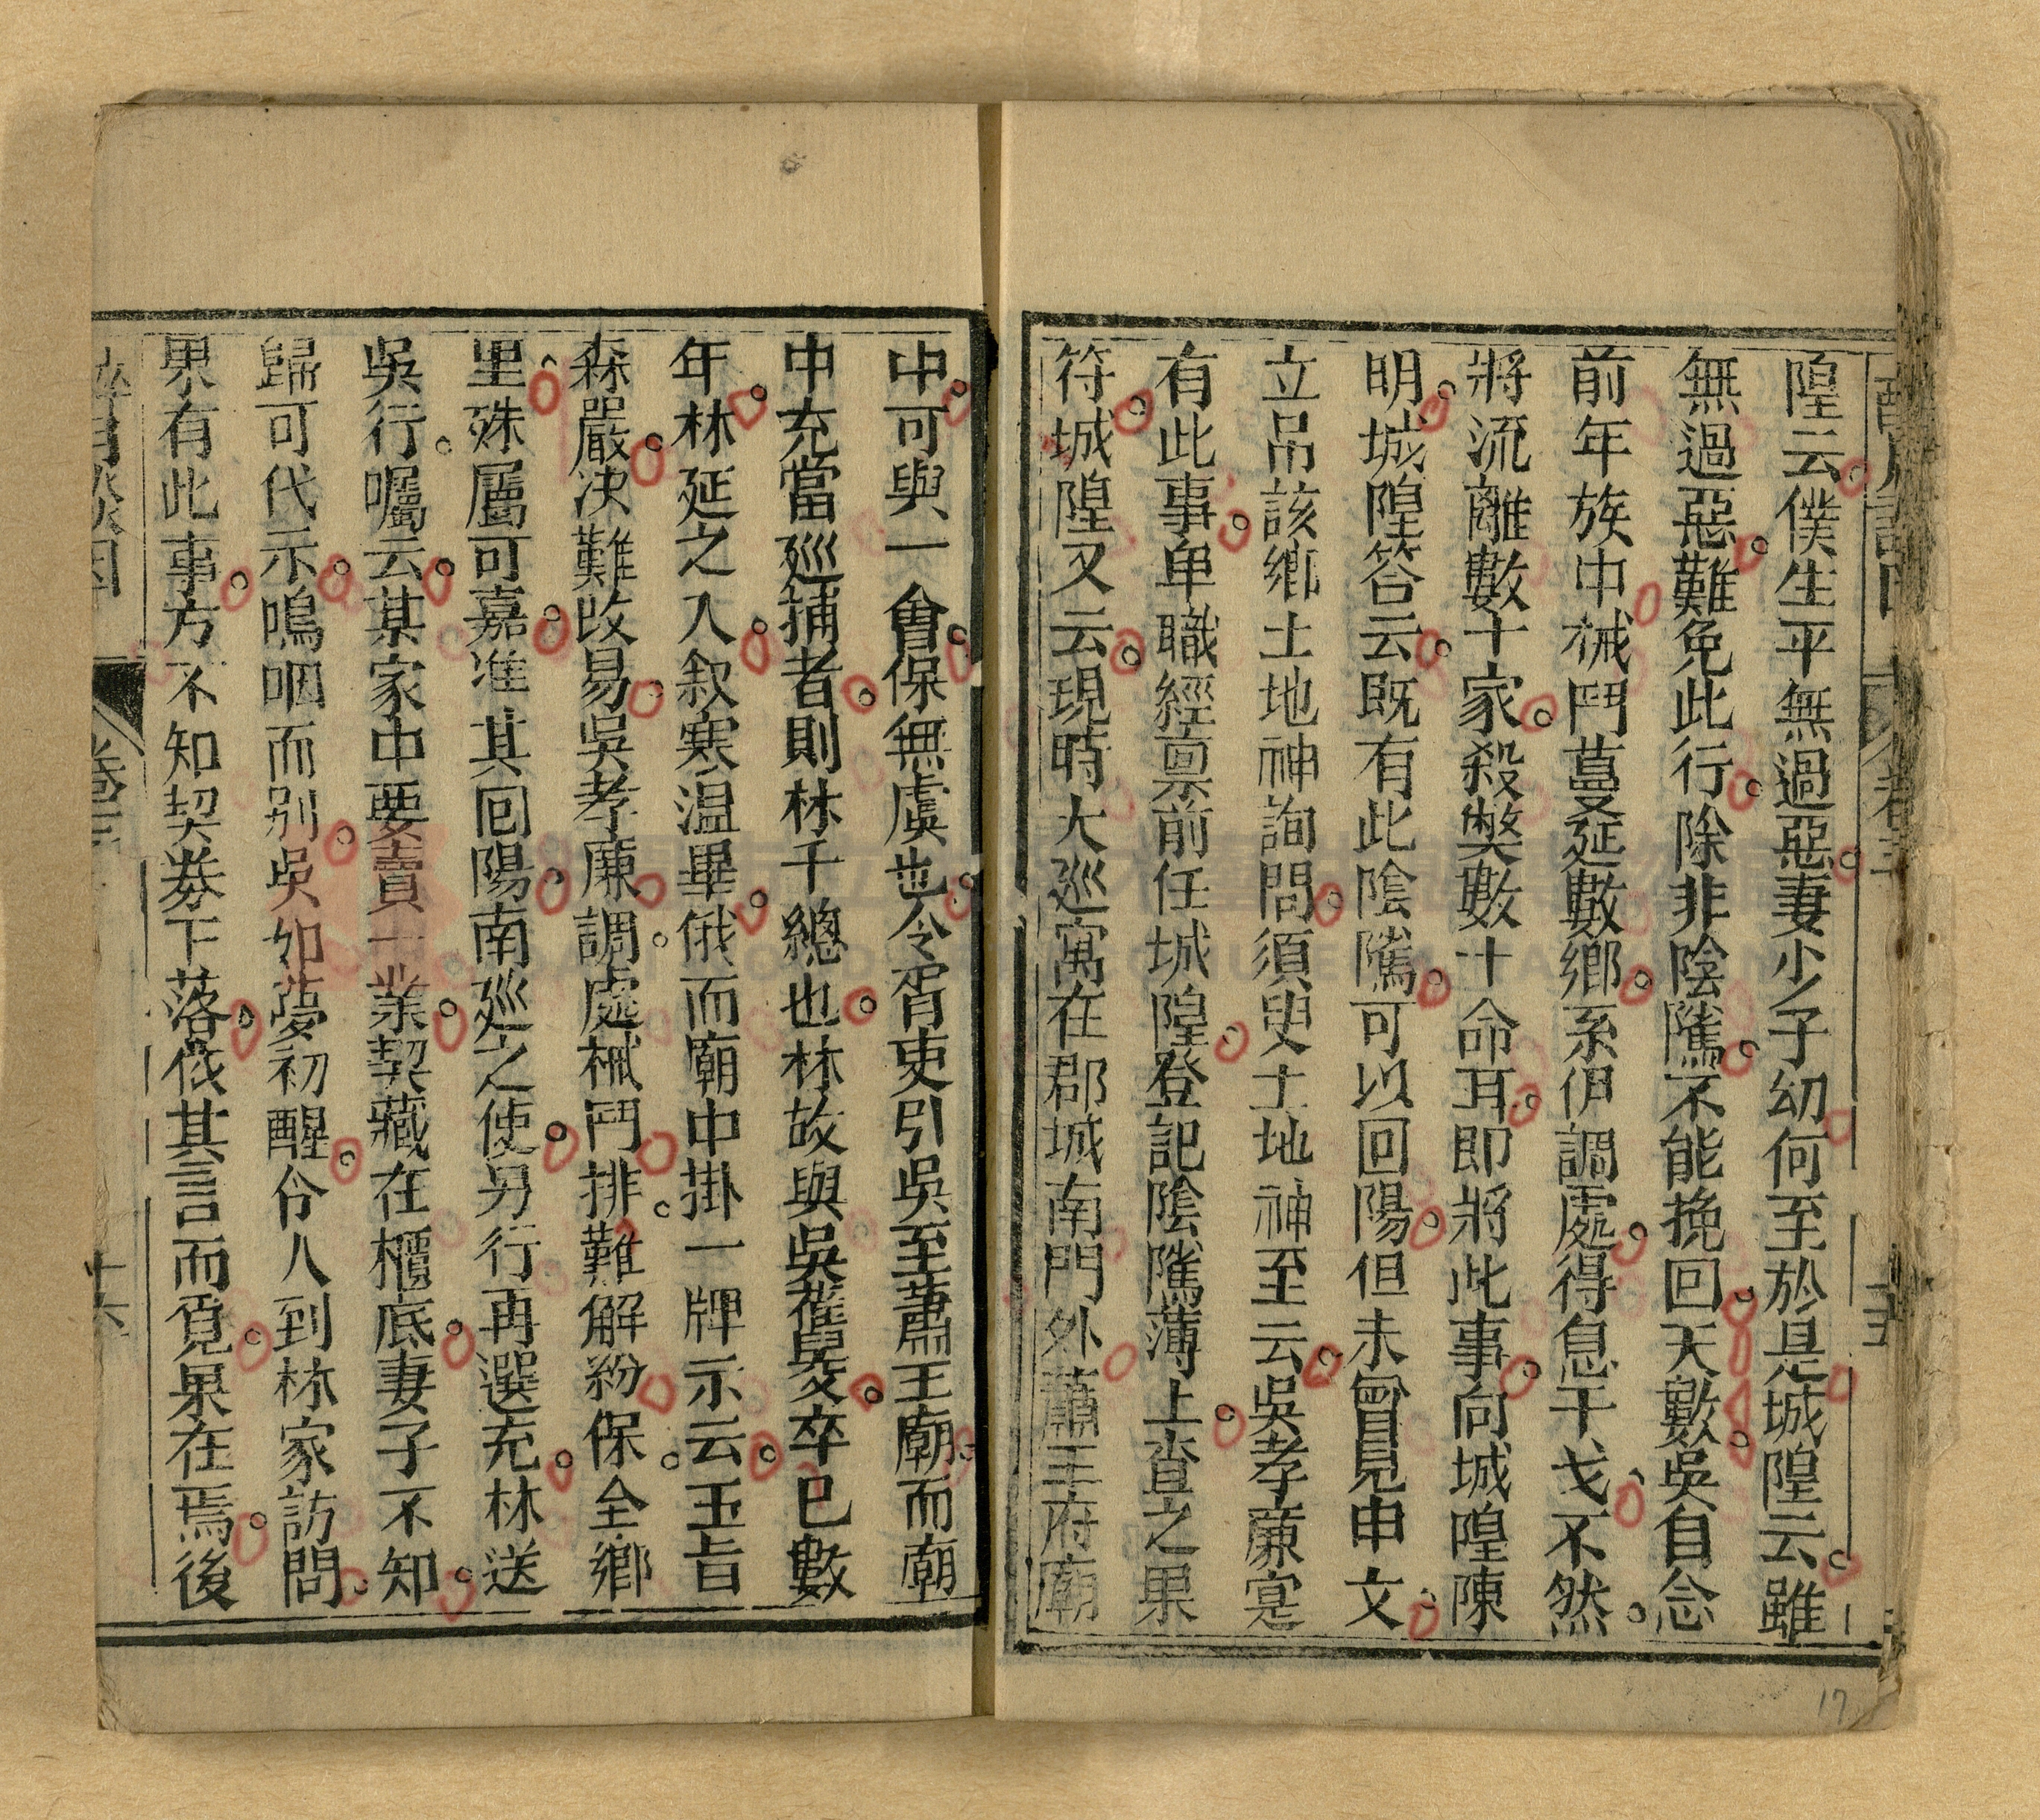 隍云僕生平無過惡妻少子幼何至於是城隍云雖
無過惡難免此行除非陰隲不能挽回天數吳自念
前年族中械鬥蔓延數鄉系伊調處得息干戈不然
將流離數十家殺斃數十命耳即將此事向城隍陳
明城隍答云既有此陰隲可以回陽但未曾見申文
立吊該鄉土地神詢問須臾土地神至云吳孝廉寔
有此事卑職經禀前任城隍登記陰隲薄上查之果
符城隍又云現時大巡寓在郡城南門外蕭王府廟
卷三
十五
中可與一會保無虞也令胥吏引吳至蕭王廟而廟
中充當巡捕者則林千總也林故與吳雀臾交卒已數
年林延之入叙寒溫畢俄而廟中掛一牌示云玉旨
森嚴決難改易吳孝廉調處械鬥排難解紛保全鄉
里殊屬可嘉准其回陽南巡之使另行再選充林送
吳行囑云某家中要賣一業契藏在櫃底妻子不知
歸可代示鳴咽而别吳如夢初醒令人到林家訪問
果有此事方不知契券下落依其言而覓果在焉後
卷三
十六
17